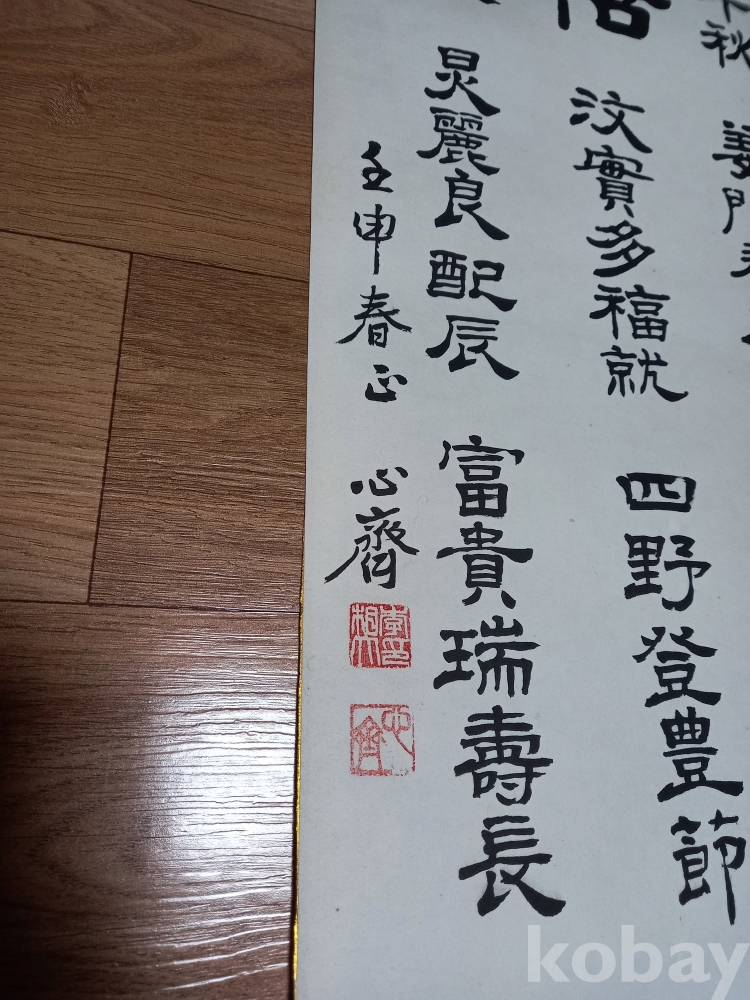 秋 姜門
汶實多福就 四野登豊節
炅麗良配辰 富貴瑞壽長
壬申春正 心齊
心齊
kobay